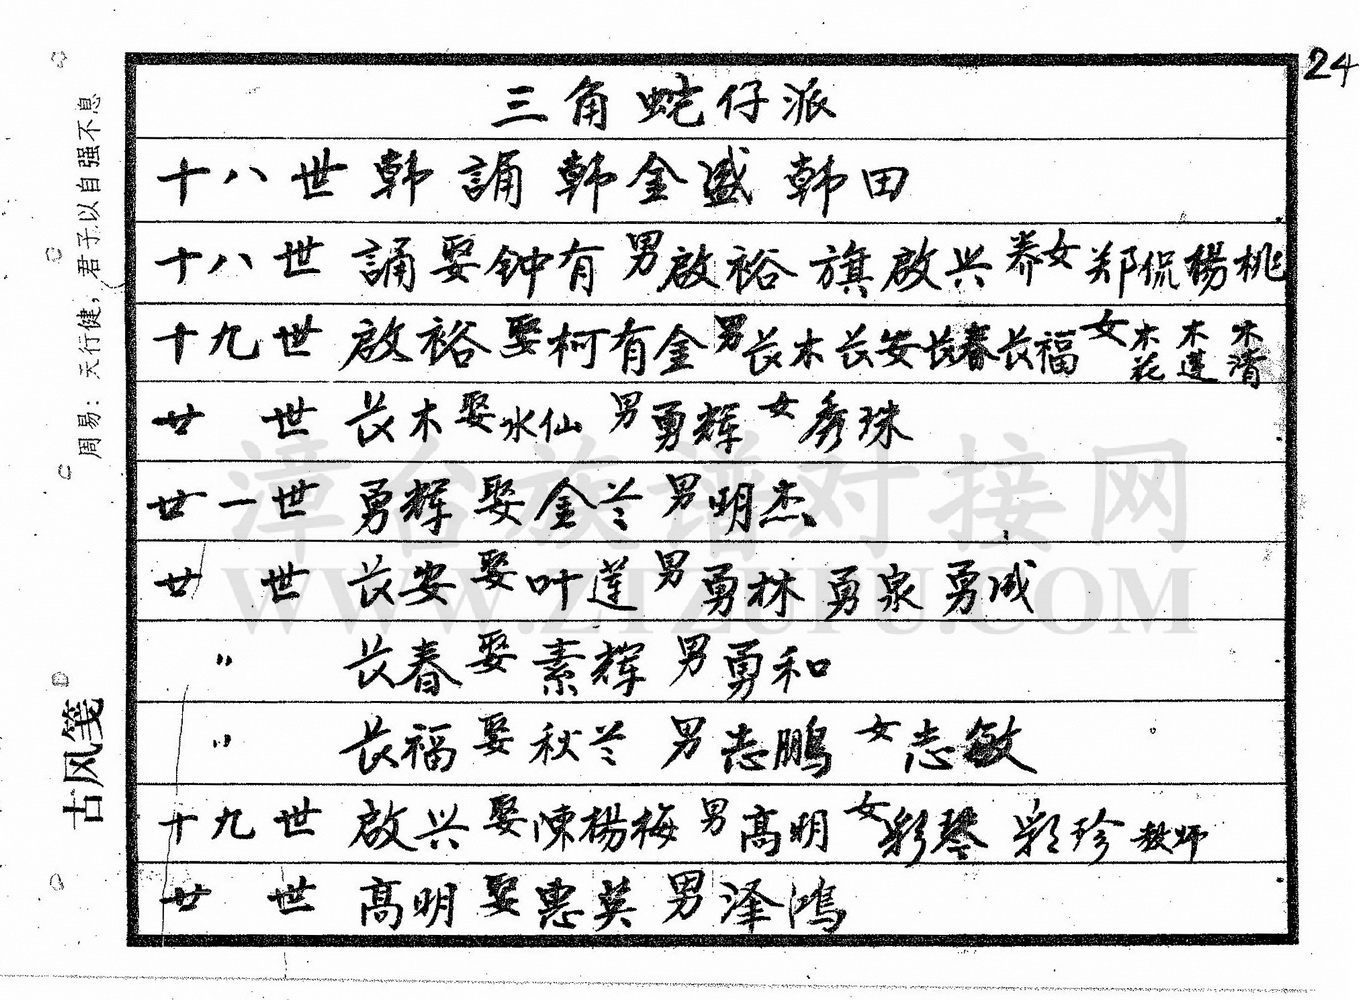 24
三角蛇仔派
十八世 韩誦 韩金盛 韩田
十八世 誦娶钟有 男啟裕 旗啟兴 养女郑侃楊桃
十九世 啟裕娶柯有金 男长木长安长春长福 女木花 木莲 木清
廿世 长木娶水仙 男勇辉 女秀珠
廿一世 勇辉娶金兰 男明杰
廿世 长安娶叶莲 男勇林 勇泉 勇成
〃 长春娶素辉 男勇和
〃 长福娶秋兰 男志鹏 女志敏
十九世 啟兴娶陳楊梅 男高明 女彩琴 彩珍 教师
廿世 高明娶惠英 男泽鴻
周易：天行健，君子以自强不息
古风笺
漳台族谱对接网
WWW.ZTZUPU.COM